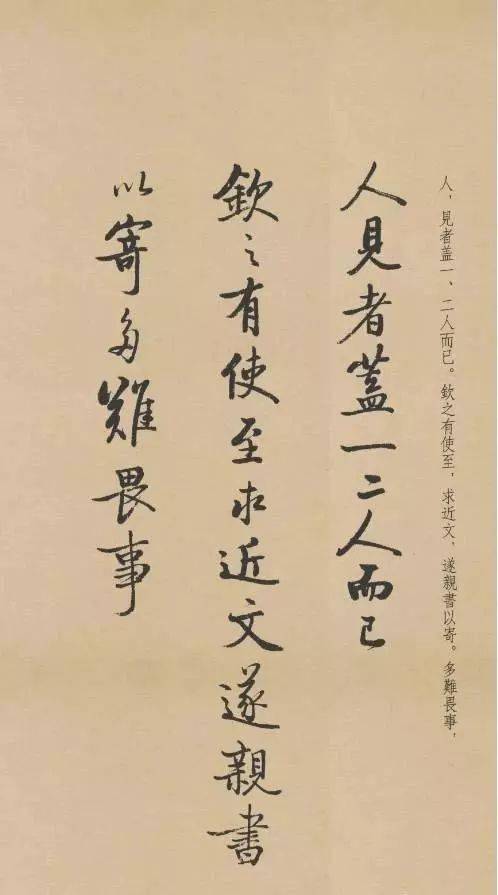 人，見者盖一、二人而已。欽之有使至，求近文，遂親書以寄。多難畏事，
人見者盖一二人而已
欽之有使至求近文遂親書
以寄多難畏事